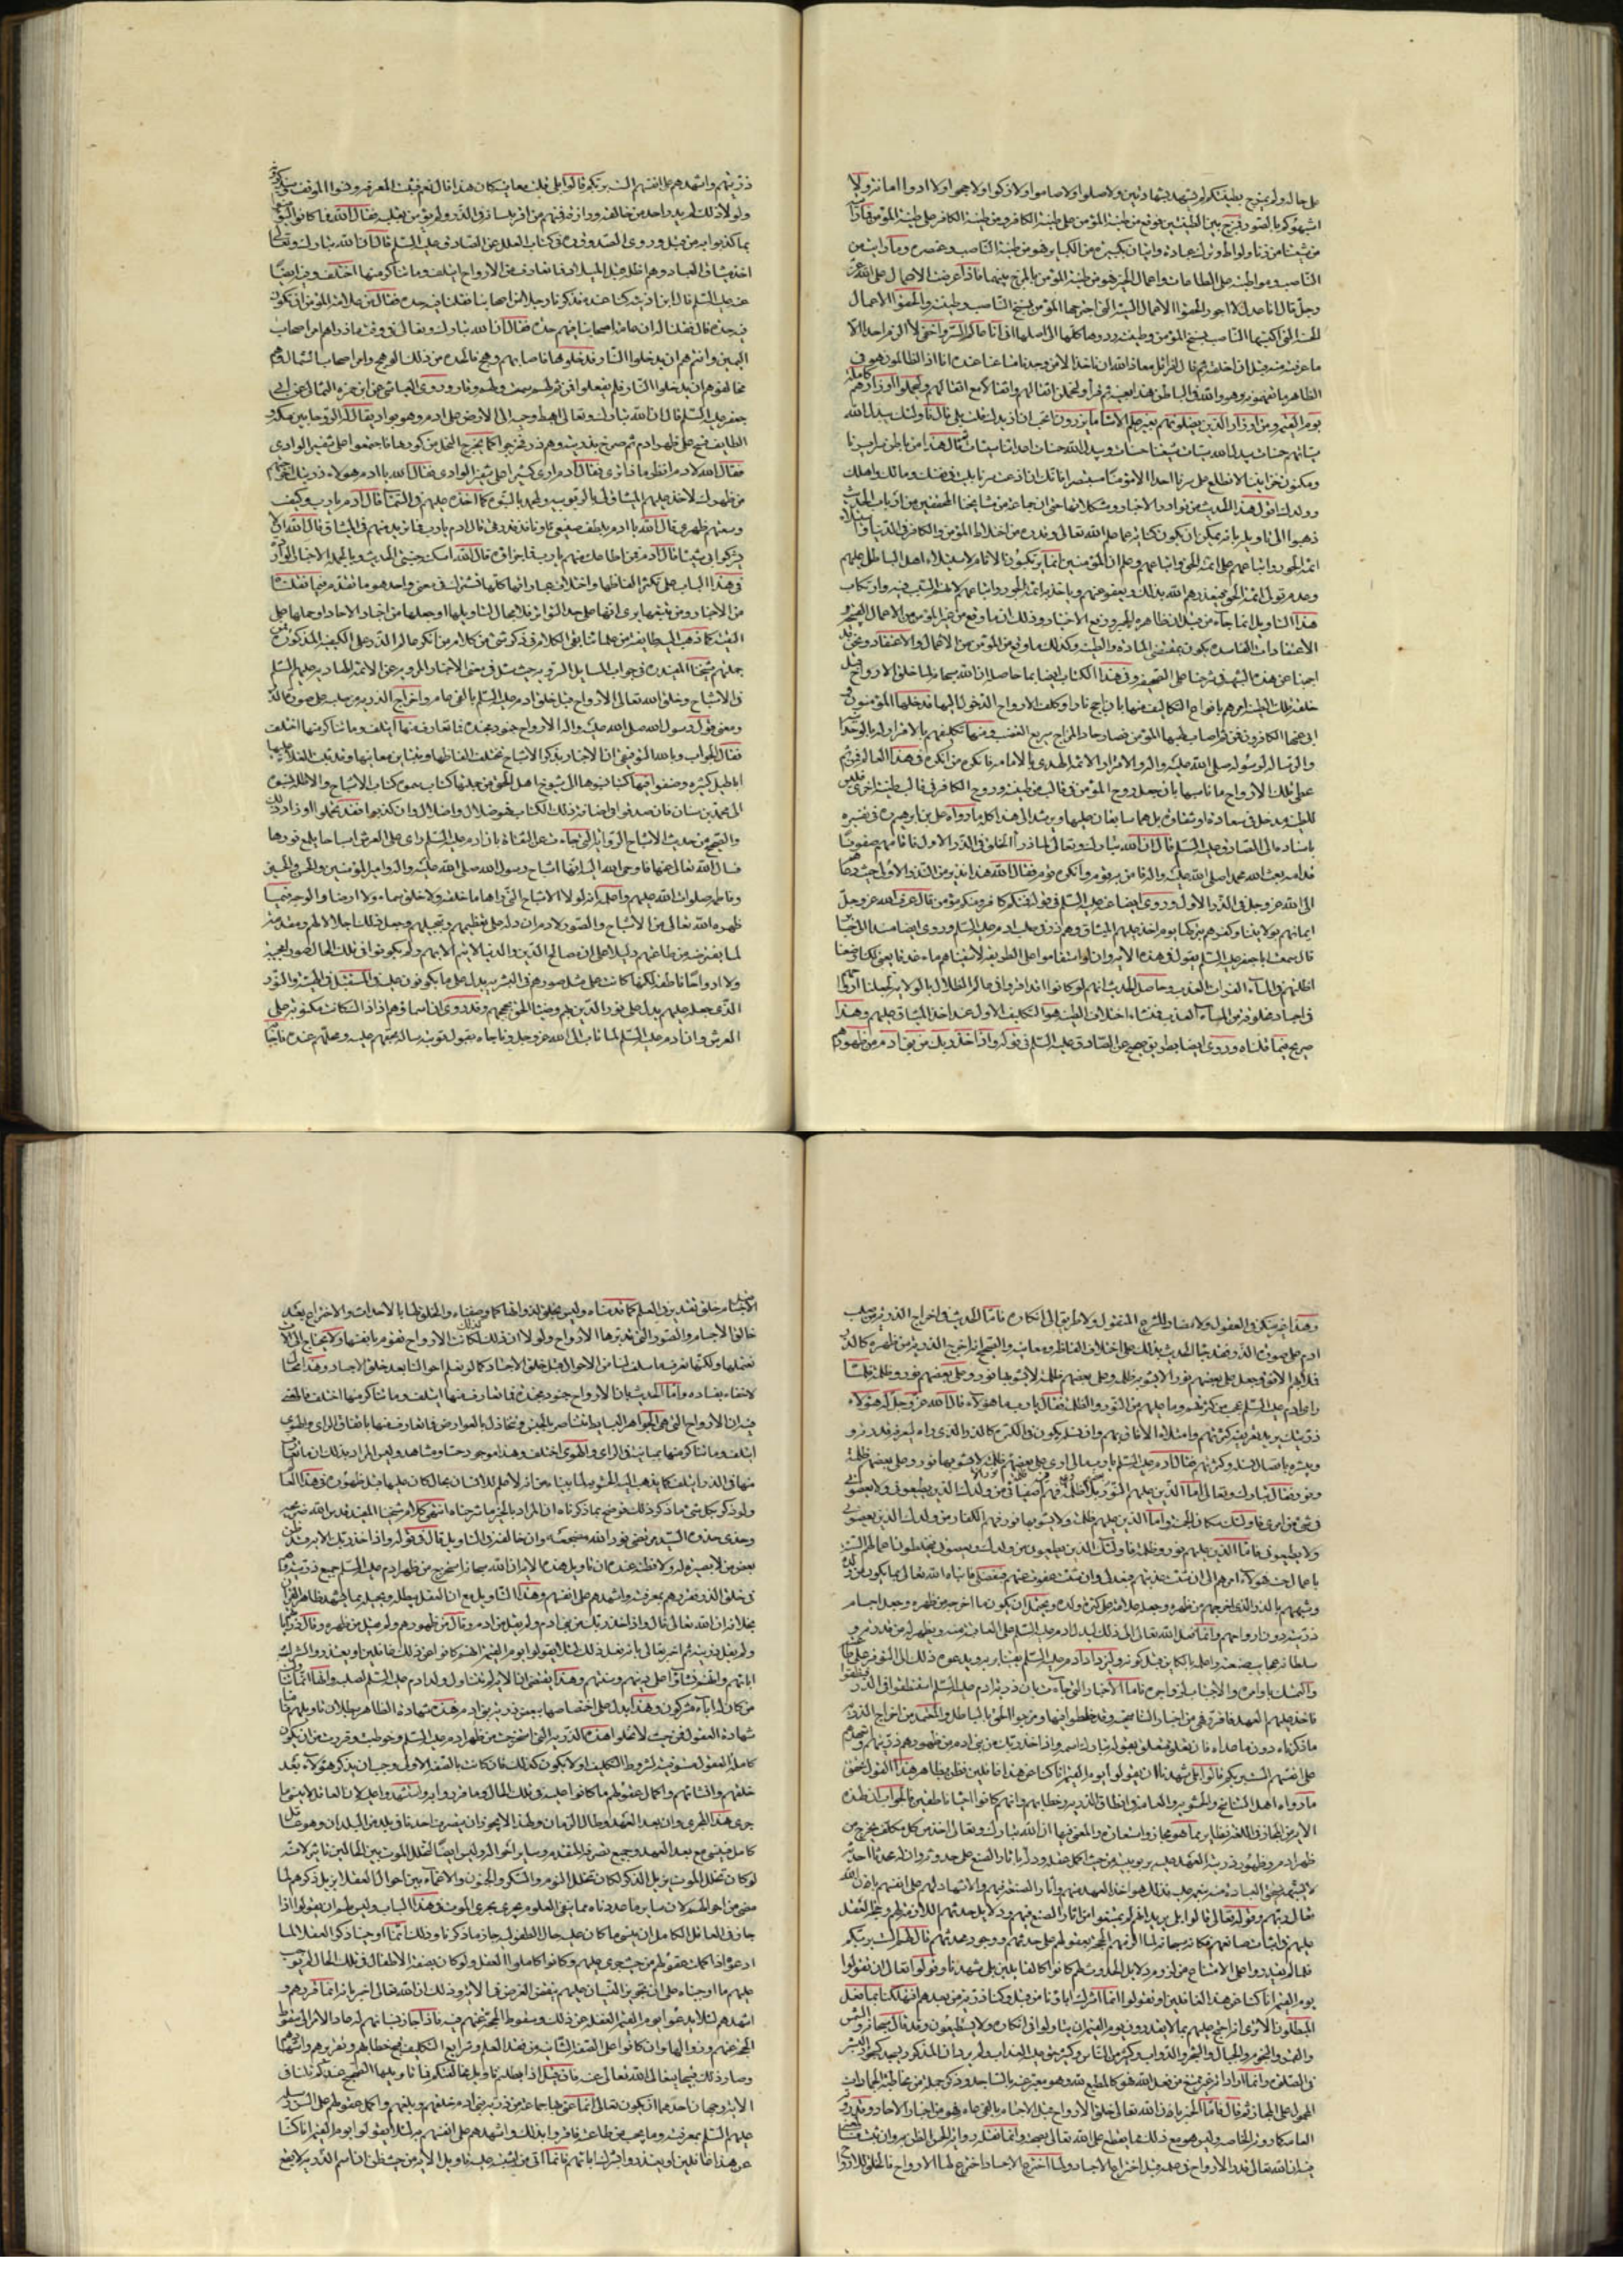 على حاله ولم يمتزج بطينتكم لم يشهدوا شهادتين ولا صلوا ولا صاموا ولا زكوا ولا حجوا ولا ادوا امانة ولا
اشبهوكم بالصور فمزج بين الطينتين فوقع من طينة المؤمن على طينة الكافر ومن طينة الكافر على طينة المؤمن فما رايت
من شيعتنا من زنا ولواط وترك عبادة واتيان بكبيرة من الكبائر فهو من طينة الناصب وعنصره وما رايت من
الناصب ومواظبته على الطاعات واعمال الخير فهو من طينة المؤمن بالمزج بينهما فاذا عرضت الاعمال على الله عز
وجل قال انا عدل لا اجور الحقوا الاعمال السيئة التي اجترحها المؤمن بسنخ الناصب وطينته والحقوا الاعمال
الحسنة التي اكتسبها الناصب بسنخ المؤمن وطينته ردوها كلها الى اصلها انى انا عالم السر واخفى
ثم قال اقرأ قل معاذ الله ان نأخذ الا من وجدنا متاعنا عنده انا اذا لظالمون هو في
الظاهر ما تفهمونه وهو والله في الباطن هذا بعينه ثم قرأ وليحملن اثقالهم واثقالا مع اثقالهم وليحملوا اوزارهم كاملة
يوم القيمة ومن اوزار الذين يضلونهم بغير علم الا ساء ما يزرون اتحب ان ازيدك قلت بلى قال فاولئك يبدل الله
سيئاتهم حسنات يبدل الله سيئات شيعتنا حسنات ويبدل الله حسنات اعدائنا سيئات ثم قال هذا من باطن سرايرنا
ومكنون خزايننا لا تطلع على سرنا احدا الا مؤمنا مستبصرا فانك ان اذعت سرنا بليت في نفسك ومالك واهلك
وولدك اقول هذا الحديث من نوادر الاخبار ومشكلاتها حتى ان جماعة من مشايخنا المحققين من ارباب الحديث
ذهبوا الى تاويله بانه يمكن ان يكون كناية عما علم الله تعالى وقدره من اختلاط المؤمن والكافر في الدنيا واستيلاء
ائمة الجور واتباعهم على ائمة الحق واتباعهم وعلم ان المؤمنين انما يرتكبون الاثام لاستيلاء اهل الباطل عليهم
وعدم تولى ائمة الحق فيعذرهم الله بذلك ويعفو عنهم ويأخذ ائمة الجور واتباعهم لانهم السبب فيه
هذا التاويل انما جاء من قبل ان ظاهره الجبر وفتح الاخبار وذلك ان ما وقع من المؤمن من الاعمال القبيحة
الاعتقادات الفاسدة يكون بمقتضى المادة والطينة وكذلك ما وقع من المؤمن من الاعمال والاعتقاد ونحن قد
اجبنا عن هذه الشبهة في شرحنا على الصحيفة وفي هذا الكتاب ايضا بما حاصله ان الله سبحانه لما خلق الارواح قبل
خلقة تلك الطينة امرهم بانواع التكاليف منها بان اجج نارا وكلف الارواح الدخول اليها فدخلها المؤمنون و
ابى عنها الكافرون ومنها تكليفهم بالاقرار له بالوحدانية
والرسالة لرسوله صلى الله عليه وآله والاقرار لائمة الهدى بالامامة فانكر من انكره في هذا العالم فمن ثم
عطى تلك الارواح ما ناسبها بان جعل روح المؤمن في قالب من طينة وروح الكافر في قالب طينة اخرى فليس
للطينة مدخل في سعادة او شقاوة بل هما سابقان عليها ويرشد الى هذا كله ما رواه على بن ابرهيم ره في تفسيره
باسناده الى الصادق عليه السلم قال ان الله تبارك وتعالى لما ذرأ الخلق في الذر الاول فاقامهم صفوفا
قدامه بعث الله محمدا صلى الله عليه وآله فامن به قوم وانكره قوم فقال الله هذا نذير من النذر الاولى حيث دعاهم
الى الله عز وجل في الذر الاول وروى ايضا عنه عليه السلم في قوله فمنكم كافر ومنكم مؤمن قال عرف الله عز وجل
ايمانهم بولايتنا وكفرهم بتركها يوم اخذ عليهم الميثاق وهم ذر في صلب ادم عليه السلم وروى ايضا مسندا الى
قال سمعت ابا جعفر عليه السلم يقول في هذه الاية وان لو استقاموا على الطريقة لاسقيناهم ماء غدقا يعني لكنا وضعنا
اظلتهم في الماء الفرات العذب وحاصل الحديث انهم لو كانوا اذ اقروا في عالم الظلال بالولاية لجعلنا ارواحهم
في اجساد مخلوقة من الماء العذب فمنشاء اختلاف الطينة هو التكليف الاول عند اخذ الميثاق عليهم وهذا
صريح فيما قلناه وروى ايضا بطريق صحيح عن الصادق عليه السلم في قوله واذ اخذ ربك من بني ادم من ظهورهم
ذريتهم واشهدهم على انفسهم الست بربكم قالوا بلى قلت معاينة كان هذا قال نعم فثبتت المعرفة ونسوا الموقف وسيذكرونه
ولولا ذلك لم يدر احد من خالقه ورازقه فمنهم من اقر بلسانه في الذر ولم يؤمن بقلبه فقال الله فما كانوا ليؤمنوا
بما كذبوا به من قبل وروى الصدوق ره في كتاب العلل عن الصادق عليه السلم قال ان الله تبارك وتعالى
اخذ ميثاق العباد وهم اظلة قبل الميلاد فما تعارف من الارواح ايتلف وما تناكر منها اختلف وفيه ايضا
عنه عليه السلم
فيه حدة قال فقلنا له ان عامة اصحابنا فيهم حدة فقال ان الله تبارك وتعالى في وقت ما ذرأهم امر اصحاب
اليمين وانتم هم ان يدخلوا النار فدخلوها فاصابهم وهج فالحدة من ذلك الوهج وامر اصحاب الشمال وهم
مخالفوهم ان يدخلوا النار فلم يفعلوا فمن ثم لهم سمت ولهم وقار وروى العياشي عن ابي حمزة الثمالي عن ابي
جعفر عليه السلم قال ان الله تبارك وتعالى اهبط وحيه الى الارض على ادم وهو بواد يقال له الروحا بين مكة و
الطايف فمسح على ظهر ادم ثم صرخ بذريته وهم ذر فخرجوا كما يخرج النحل من كورها فاجتمعوا على شفير الوادي
فقال الله لادم انظر ماذا ترى فقال ادم ارى ذرا كثيرا على شفير الوادي فقال الله يا ادم هؤلاء ذريتك اخرجتهم
من ظهرك لاخذ عليهم الميثاق لي بالربوبية ولمحمد بالنبوة كما اخذته عليهم في السماء قال ادم يا رب وكيف
وسعتهم ظهري قال الله يا ادم بلطف صنيعي ونافذ قدرتي قال ادم يا رب فما تريد منهم في الميثاق قال الله ان لا
يشركوا بي شيئا قال ادم فمن اطاعك منهم يا رب فما جزاؤه قال الله اسكنه جنتي الحديث وبالجملة الاخبار الواردة
في هذا الباب على تكثر الفاظها واختلاف عباراتها كلها تشترك في معنى واحد وهو ما تقدم فيما نقلناه
من الاخبار ومن تتبعها يرى انها على حد التواتر فلا مجال لتاويلها او جعلها من اخبار الاحاد او حملها على
التمثيل كما ذهب اليه طايفة من علمائنا بقي الكلام في ذكر شيء من كلام من انكر عالم الذر على الكيفية المذكورة فمن
جملتهم شيخنا المفيد ره في جواب المسايل السروية حيث سئل في معنى الاخبار المروية عن الائمة الهادية عليهم السلم
في الاشباح وخلق الله تعالى الارواح قبل خلق ادم عليه السلم بالفي عام واخراج الذرية من صلبه على صور الذر
ومعنى قول رسول الله صلى الله عليه وآله الارواح جنود مجندة فما تعارف منها ايتلف وما تناكر منها اختلف
فقال الجواب وبالله التوفيق ان الاخبار بذكر الاشباح تختلف الفاظها وتتباين معانيها وقد بنت الغلاة عليها
اباطيل كثيرة وصنفوا فيها كتبا نسبوها الى شيوخ اهل الحق من جملتها كتاب سموه كتاب الاشباح والاظلة نسبوه
الى محمد بن سنان فان صدقوا في اضافة ذلك الكتاب فهو ضلال واضلال وان كذبوا فقد تحملوا اوزار ذلك
والصحيح من حديث الاشباح الرواية التي جاءت عن الثقاة بان ادم عليه السلم راى على العرش اشباحا يلمع نورها
فسأل الله تعالى عنها فاوحى الله اليه انها اشباح رسول الله صلى الله عليه وآله وامير المؤمنين والحسن والحسين
وفاطمة صلوات الله عليهم واعلمه انه لولا الاشباح التي راها ما خلقه ولا خلق سماء ولا ارضا والوجه فيما
ظهره الله تعالى من الاشباح والصور لادم ان دله على تعظيمهم وتبجيلهم وجعل ذلك اجلالا لهم ومقدمة
لما يفترضه من طاعتهم ودليلا على ان مصالح الدين والدنيا لا يتم الا بهم ولم يكونوا في تلك الحال صورا مجيبة
ولا ارواحا ناطقة لكنها كانت على مثل صورهم في البشرية يدل على ما يكونون عليه في المستقبل في الهيئة والنور
الذي جعله عليهم يدل على نور الدين بهم وضياء الحق بحججهم وقد روى ان اسماؤهم اذ ذاك كانت مكتوبة على
العرش وان ادم عليه السلم لما تاب الى الله عز وجل وناجاه بقبول توبته ساله بحقهم عليه ومحلهم عنده فاجابه
وهذا غير منكر في العقول ولا مضاد للشرع المنقول ولا طريق الى انكاره فاما الحديث في اخراج الذرية من صلب
ادم على صورة الذر فقد جاء الحديث بذلك على اختلاف الفاظه ومعانيه والصحيح انه اخرج الذرية من ظهره كالذر
فملأ بهم الافق وجعل على بعضهم نورا لا يشوبه ظلمة وعلى بعضهم ظلمة لا يشوبها نور وعلى بعضهم نور وظلمة فلما
راهم ادم عليه السلم عجب من كثرتهم وما عليهم من النور والظلمة فقال يا رب ما هؤلاء قال الله عز وجل له هؤلاء
ذريتك يريد تعريفه كثرتهم وامتلاء الافاق بهم وان نسله يكون في الكثرة كالذر الذي راه ليعرفه قدرته و
ويبشره باتصال نسله وكثرتهم فقال ادم عليه السلم يا رب ما لي ارى على بعضهم نورا لا يشوبه ظلمة وعلى بعضهم ظلمة
ونور فقال تبارك وتعالى اما الذين عليهم النور بلا ظلمة فهم اصفيائي من ولدك الذين يطيعوني ولا يعصوني
في شيء من امري فاولئك سكان الجنة واما الذين عليهم ظلمة ولا يشوبها نور فهم الكفار من ولدك الذين يعصوني
ولا يطيعوني فاما الذين عليهم نور وظلمة فاولئك الذين يطيعوني من ولدك ويعصوني يخلطون اعمالهم السيئة
باعمال حسنة هؤلاء امرهم الي ان شئت عذبتهم فبعدلي وان شئت عفوت عنهم فبفضلي فانباه الله تعالى بما يكون من ولده
وشبههم بالذر الذي اخرجهم من ظهره وجعله علامة على كثرة ولده ويحتمل ان يكون ما اخرجه من ظهره وجعل اجسام
ذريته دون ارواحهم وانما فعل الله تعالى ذلك ليدل ادم عليه السلم على العاقبة منه ويظهر له من قدرته و
سلطانه وعجايب صنعته واعلمه بالكاين قبل كونه وليزداد ادم عليه السلم يقينا بربه ويدعوه ذلك الى التوفر على طاعته
والتمسك باوامره والاجتناب لزواجره فاما الاخبار التي جاءت بان ذرية ادم عليه السلم استنطقوا في الذر فنطقوا
فاخذ عليهم العهد فاقروا فهي من اخبار التناسخية وقد خلطوا فيها ومزجوا الحق بالباطل والمعتمد من اخراج الذرية
ما ذكرناه دون ما عداه فان تعلق متعلق بقوله تبارك اسمه واذ اخذ ربك من بني ادم من ظهورهم ذريتهم واشهدهم
على انفسهم الست بربكم قالوا بلى شهدنا ان يقولوا يوم القيمة انا كنا عن هذا غافلين فظن بظاهر هذا القول تحقق
ما رواه اهل التناسخ والحشوية والعامة في انطاق الذرية وخطابهم وانهم كانوا احياء ناطقين فالجواب ان هذه
الاية من المجاز في اللغة كنظايره مما هو مجاز واستعارة والمعنى فيها ان الله تبارك وتعالى اخذ من كل مكلف يخرج من
ظهر ادم وظهور ذريته العهد عليه بربوبيته من حيث اكمل عقله ودله باثار الصنع على حدوثه وان له محدثا احدثه
لا يشبهه يستحق العبادة منه بنعمه عليه فذلك هو اخذ العهد منهم واثار الصنعة فيهم والاشهاد لهم على انفسهم بان الله
تعالى ربهم وقوله تعالى قالوا بلى يريد انهم لم يمتنعوا من لزوم اثار الصنعة فيهم ودلايل حدثهم اللازمة لهم وحجة العقل
عليهم في اثبات صانعهم فكانه سبحانه لما الزمهم الحجة بعقولهم على حدثهم ووجود محدثهم قال لهم الست بربكم
فلما لم يقدروا على الامتناع من لزوم دلايل الحدوث لهم كانوا كالقائلين بلى شهدنا وقوله تعالى ان تقولوا
يوم القيمة انا كنا عن هذا غافلين او تقولوا انما اشرك اباؤنا من قبل وكنا ذرية من بعدهم افتهلكنا بما فعل
المبطلون الا ترى انه احتج عليهم بما لا يقدرون يوم القيمة ان يتاولوا في انكاره ولا يستطيعون وقد قال سبحانه والشمس
والقمر والنجوم والجبال والشجر والدواب وكثير من الناس وكثير حق عليه العذاب ولم يرد ان المذكور يسجد كسجود البشر
في الصلوة وانما اراد انه غير ممتنع من فعل الله فهو كالمطيع لله وهو معبر عنه بالساجد
المجهول على المجاز ثم قال فاما الخبر بان الله تعالى خلق الارواح قبل الاجساد بالفي عام فهو من اخبار الاحاد وقد روته
العامة كما روته الخاصة وليس هو مع ذلك مما يقطع على الله تعالى بصحته وانما نقله رواته لحسن الظن به وان ثبت فالمعنى
فيه ان الله تعالى قدر الارواح في علمه قبل اختراع الاجساد ولما اخترع الاجساد اخترع لها الارواح فالخلق للارواح
قبل الاجسام خلق تقدير في العلم كما قدمناه وليس بخلق لذواتها كما وصفناه والخلق لها بالاحداث والاختراع بعد
خلق الاجسام والصور التي تدبرها الارواح ولولا ان ذلك كذلك لكانت الارواح تقوم بانفسها ولا تحتاج الى الات
تعملها ولكنا نعرف ما سلف لنا من الاحوال قبل خلق الاجساد كما نعلم احوالنا بعد خلق الاجساد وهذا محال
لا خفاء بفساده واما الحديث بان الارواح جنود مجندة فما تعارف منها ايتلف وما تناكر منها اختلف فالمعنى
فيه ان الارواح التي هي الجواهر البسايط تتناصر بالجنس وتتخاذل بالعوارض فما تعارف منها باتفاق الراي والهوى
ايتلف وما تناكر منها بمباينة في الراي والهوى اختلف وهذا موجود حسا ومشاهد وليس المراد بذلك ان ما تعارف
منها في الذر ايتلف كما يذهب اليه الحشوية لما بيناه من انه لا علم للانسان بحال كان عليها قبل ظهوره في هذا العالم
ولو ذكر بكل شيء ما ذكر ذلك فوضح بما ذكرناه ان المراد بالخبر ما شرحناه انتهى كلام شيخنا المفيد قدس الله ضريحه
وحذى حذوه السيد مرتضى نور الله مضجعه وان خالفه في التاويل قال في قوله واذ اخذ ربك الاية وقد ظن
بعض من لا بصيرة له ولا فطنة عنده ان تاويل هذه الاية ان الله سبحانه استخرج من ظهر ادم عليه السلم جميع ذريته وهم
في خلق الذر فقررهم بمعرفته واشهدهم على انفسهم وهذا التاويل مع ان العقل يبطله ويحيله مما يشهد ظاهر القرآن
بخلافه ان الله تعالى قال واذ اخذ ربك من بني ادم ولم يقل من ادم وقال من ظهورهم ولم يقل من ظهره وقال ذريتهم
ولم يقل ذريته ثم اخبر تعالى بانه فعل ذلك لئلا يقولوا يوم القيمة انهم كانوا عن ذلك غافلين او يعتذروا بشرك
ابائهم وانهم نشاؤا على دينهم وسنتهم وهذا يقتضي ان الاية لم يتناول ولد ادم عليه السلم لصلبه وانها انما تناولت
من كان له اباء مشركون وهذا يدل على اختصاصها ببعض ذرية بني ادم فهذه شهادة الظاهر ببطلان تاويلهم فاما
شهادة العقول فمن حيث لا تخلو هذه الذرية التي استخرجت من ظهر ادم عليه السلم وخوطبت وقررت من ان يكون
كاملة العقول مستوفية لشروط التكليف او لا يكون كذلك فان كانت بالصفة الاولى وجب ان يذكر هؤلاء بعد
خلقهم وانشائهم واكمال عقولهم ما كانوا عليه في تلك الحال وما قرروا به واستشهدوا عليه لان العاقل لا ينسى ما
جرى هذا المجرى وان بعد العهد وطال الزمان ولهذا لا يجوز ان يتصرف احدنا في بلد من البلدان وهو عاقل
كامل فينسى مع بعد العهد وجميع تصرفه المتقدم وساير احواله وليس ايضا لتخلل الموت بين الحالين تاثير لانه
لو كان تخلل الموت يزيل الذكر لكان تخلل النوم والسكر والجنون والاغماء بين احوال العقلا يزيل ذكرهم لما
مضى من احوالهم لان ساير ما عددناه مما ينفي العلوم يجري مجرى الموت وهذا الباب وليس لهم ان يقولوا اذا
جاز في العاقل الكامل ان ينسى ما كان عليه حال الطفولية جاز ما ذكرنا وذلك انما اوجبنا ذكر العقلا لما
ادعوه اذا كملت عقولهم من حيث جرى عليهم وكانوا كاملوا العقل ولو كانوا بصفة الاطفال في تلك الحال لم نوجب
عليهم ما اوجبناه على ان تجويز النسيان عليهم ينقض الغرض في الاية وذلك ان الله تعالى اخبر بانه انما قررهم و
اشهدهم لئلا يدعوا يوم القيمة الغفلة عن ذلك وسقوط الحجة عنهم فيه فاذا جاز نسيانهم له عاد الامر الى سقوط
الحجة عنهم وزوالها وان كانوا على الصفة الثانية من فقد العقل وشرايط التكليف قبح خطابهم وتقريرهم واشهادهم
وصار ذلك قبيحا يتعالى الله تعالى عنه فان قيل قد ابطلتم تاويل مخالفيكم فما تاويلها الصحيح عندكم قلنا في
الاية وجهان احدهما ان يكون تعالى انما عنى بها جماعة من ذرية بني ادم خلقهم وبلغهم واكمل عقولهم على السن رسله
عليهم السلم بمعرفته وما يجب من طاعته فاقروا بذلك واشهدهم على انفسهم به لئلا يقولوا يوم القيمة انا كنا
عن هذا غافلين او يعتذروا بشرك ابائهم وانما اتى من اشتبه عليه تاويل الاية من حيث ظن ان اسم الذرية لا يقع